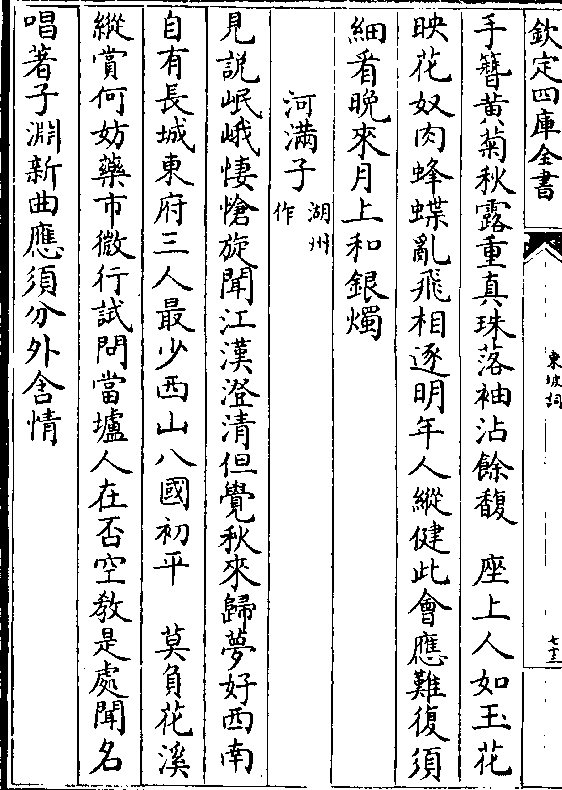 欽定四庫全書
東坡詞
七十三
手簪黄菊秋露重真珠落袖沾餘馥　座上人如玉花
映花奴肉蜂蝶亂飛相逐明年人縱健此會應難復須
細看晚來月上和銀燭
河滿子湖州作
見説岷峨悽愴旋聞江漢澄清但覺秋來歸夢好西南
自有長城東府三人最少西山八國初平　莫負花溪
縱賞何妨藥市微行試問當壚人在否空教是處聞名
唱著子淵新曲應須分外含情